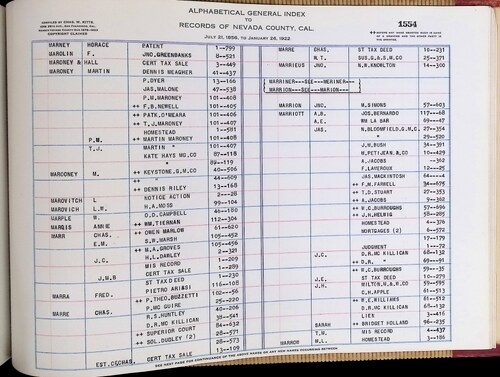 COMPILED BY CHAS. W. GITTS,
COPYRIGHT CLAIMED
ALPHABETICAL GENERAL INDEX
TO
RECORDS OF NEVADA COUNTY, CAL.
JULY 21, 1856, TO JANUARY 28, 1922
1554
MARNEY HORACE PATENT 1--799
MARLIN F. JNO.GREENBANKS 8--521
MARONEY & HALL CERT TAX SALE 3--449
MARONEY MARTIN DENNIS MEAGHER 41--437
P.DYER 13--166
JAS.MALONE 47--538
P.M.MARONEY 101--408
++ F.B.NEWELL 101--405
++ PATK.O'MEARA 101--406
++ T.J.MARONEY 101--407
HOMESTEAD 1--581
P.M. ++ MARTIN MARONEY 101--408
T.J. MARTIN " 101--407
KATE HAYS MG.CO 87--118
" 89--119
MARCONEY M. ++ KEYSTONE.G.M.CO 40--506
++ " 44--609
++ DENNIS RILEY 13--168
NOTICE ACTION 2--28
MAROVITCH L H.A.MOSS 99--104
MAROVICH L.M. O.D.CAMPBELL 46--180
MARPLE H. ++ WM.TIERNAN 112--304
MARQIS ANNIE ++ OWEN MARLOW 61--620
MARR CHAS. S.W.MARSH 105--452
E.M. ++ M.A.GROVES 105--456
H.L.DABLEY 2--321
J.C. MIS RECORD 1--209
CERT TAX SALE 1--289
J.M.B ST TAX DEED 1--230
PIETRO ARIBSI 116--108
MARRA FRED. ++ P.THEO.BUZZETTI 102--56
P.MC GUIRE 25--220
MARRE CHAS. R.S.HUNTLY 40--206
D.R.MC KILLICAN 38--541
++ SUPERIOR COURT 84--632
++ SOL.DUDLEY (2) 28--571
EST.C&CHAS. CERT TAX SALE 13--109
MARRE CHAS. ST TAX DEED 10--231
W.T. SUS.G.&S.M.CO 28--371
MARRIEUS JNO. N.R.KNOWLTON 14--300
MARRINER---SEE---MERINER---
MARRION---SEE---MARION---
MARRION JNO. M.SIMONS 57--603
MARRIOTT A.B. JOS.BERNARDO 117--68
A.E. WM LA BAR 69--47
JAS. N.BLOOMFIELD.G.M.C. 27--354
" 29--520
J.M.BUSH 34--391
M.PETIJEAN.&CO 10--429
A.JACOBS --362
F.LAVEROUX 12--25
JAS.MACKINTOSH 64--4
++ F.M.FARWELL 34--675
++ T.D.STUART 27--353
++ A.JACOBS 9--362
++ W.C.BURROUGHS 57--696
++ J.H.HELWIG 58--285
HOMESTEAD 4--376
MORTGAGES (2) 8--572
17--179
JUDGMENT 1--72
J.C. D.R.MC KILLICAN 68--132
++ D.R. " 69--91
++ W.C.BURROUGHS 59--35
J.E. ST TAX DEED 10--279
J.H. WILTON.M.&R.CO 59--595
C.H.APPLE 61--513
++ W.E.WILLIAMS 51--512
D.R.MC KILLICAN 68--132
LIEN 3--416
SARAH ++ BRIDGET HOLLAND 96--235
T.M. MIS RECORD 4--437
MARROR M.L. HOMESTEAD 3--186